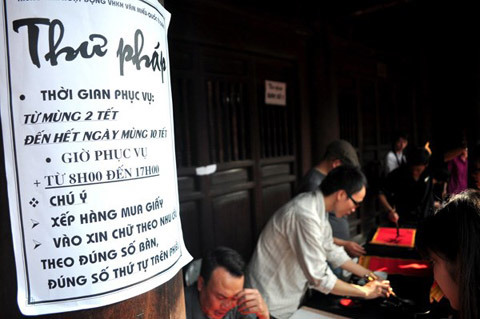 HOẠT ĐỘNG VHKH VĂN MIẾU-QUỐC TỬ
Thư pháp
• THỜI GIAN PHỤC VỤ:
TỪ MÙNG 2 TẾT
ĐẾN HẾT NGÀY MÙNG 10 TẾT
• GIỜ PHỤC VỤ
+ TỪ 8H00 ĐẾN 17H00
CHÚ Ý
➢ XẾP HÀNG MUA GIẤY
➢ VÀO XIN CHỮ THEO NHU CẦU
THEO ĐÚNG SỐ BÀN,
ĐÚNG SỐ THỨ TỰ TRÊN PHIẾU